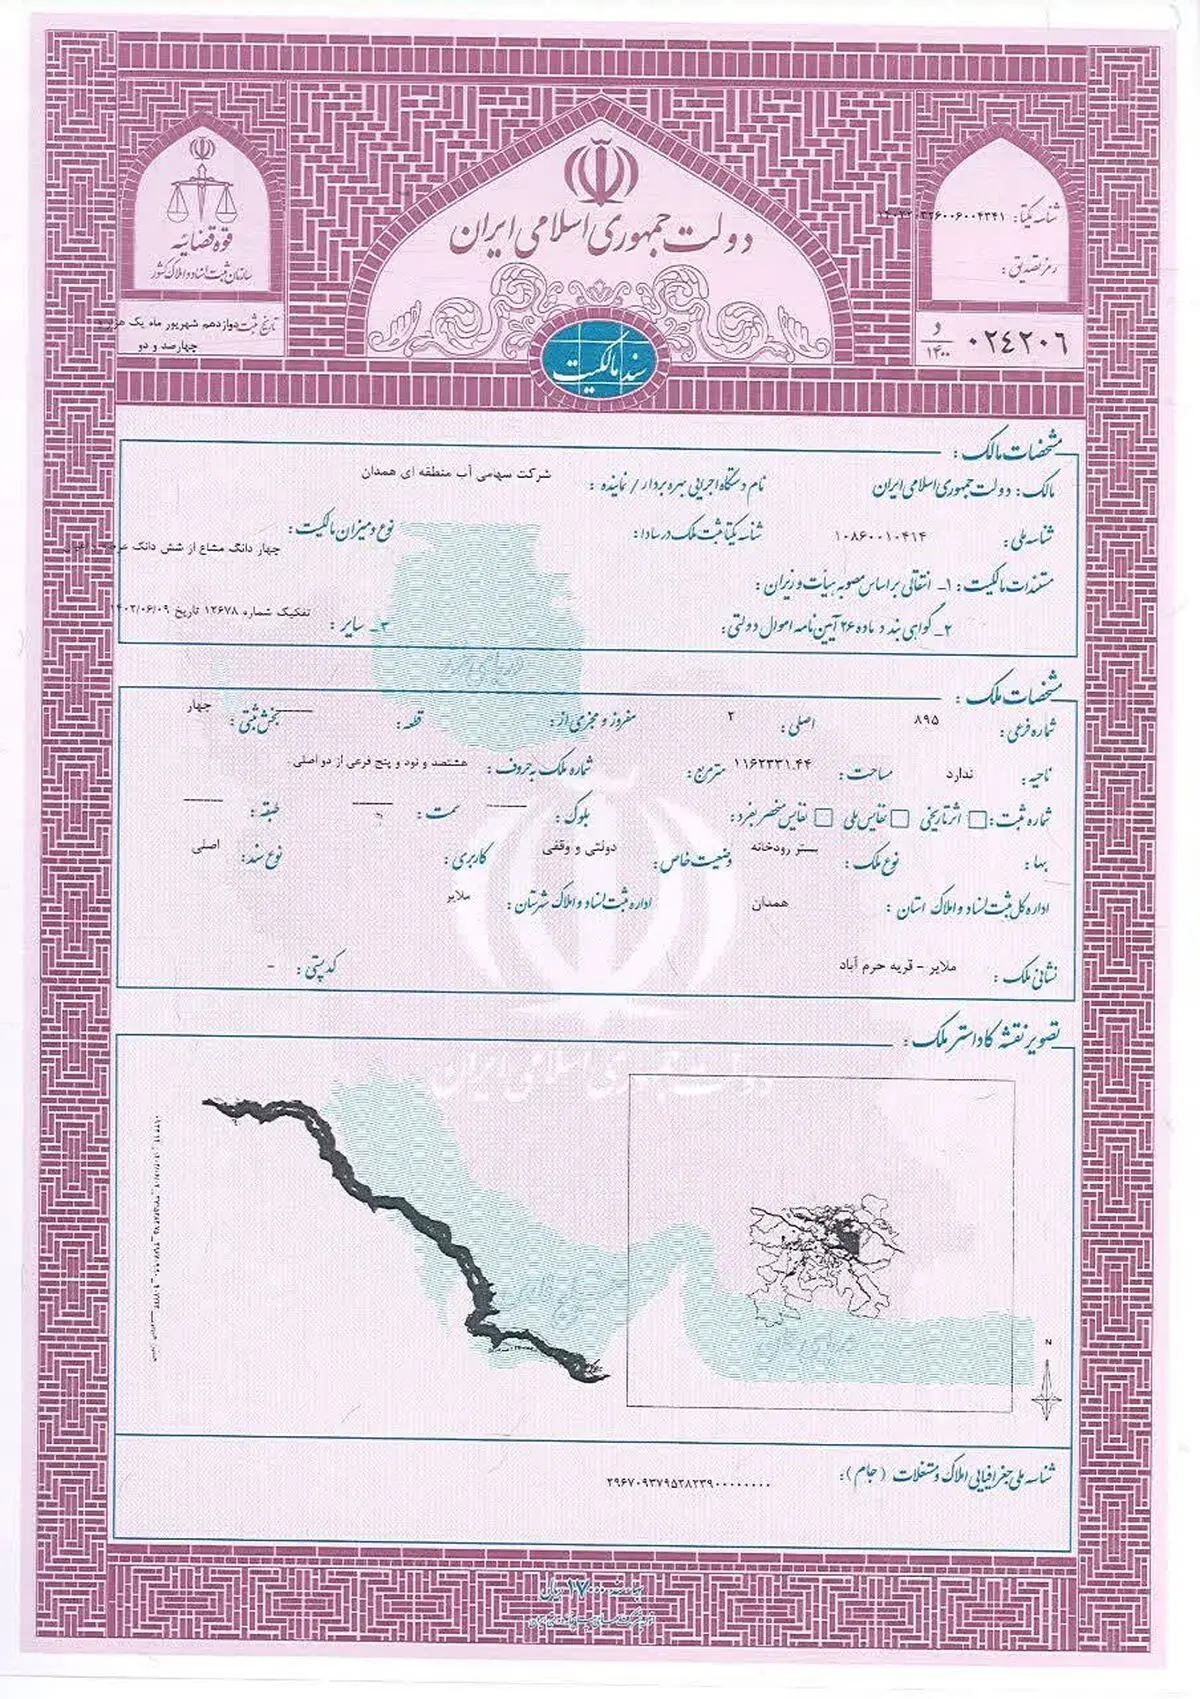 دولت جمهوری اسلامی ایران
قوه قضائیه
سازمان ثبت اسناد و املاک کشور
تاریخ ثبت: دوازدهم شهریور ماه یک هزار و
چهارصد و دو
شناسه یکتا:
رمز تصدیق:
۰۲۴۲۰۶ و ۱۴۰۰
سند مالکیت
مشخصات مالک:
مالک: دولت جمهوری اسلامی ایران نام دستگاه اجرایی بهره بردار / نماینده: شرکت سهامی آب منطقه ای همدان
شناسه ملی: ۱۰۸۶۰۰۱۰۴۱۴ شناسه یکتا ثبت ملک در سادا: نوع و میزان مالکیت: چهار دانگ مشاع از شش دانگ
مستندات مالکیت: ۱- انتقالی بر اساس مصوبه هیأت وزیران:
۲- گواهی بند د ماده ۲۶ آیین نامه اموال دولتی: ۳- سایر: تفکیک شماره ۱۲۶۷۸ تاریخ ۱۴۰۲/۰۶/۰۹
مشخصات ملک:
شماره فرعی: ۸۹۵ اصلی: ۲ مفروز و مجزی از: قطعه: ــــــ بخش ثبتی: چهار
ناحیه: ندارد مساحت: ۱۱۶۲۳۳۱.۴۴ مترمربع: شماره ملک به حروف: هشتصد و نود و پنج فرعی از دو اصلی.
شماره ثبت: □ اثر تاریخی □ نفایس ملی □ نفایس منحصر بفرد: بلوک: ــــــ سمت: ــــــ طبقه: ــــــ
بها: نوع ملک: بستر رودخانه وضعیت خاص: دولتی و وقفی کاربری: نوع سند: اصلی
اداره کل ثبت اسناد و املاک استان: همدان اداره ثبت اسناد و املاک شهرستان: ملایر
نشانی ملک: ملایر - قریه حرم آباد کد پستی: -
تصویر نقشه کاداستر ملک:
دولت جمهوری اسلامی ایران
N
شناسه ملی جغرافیایی املاک و مستغلات (جام): ۲۹۶۷۰۹۳۷۹۵۲۸۲۳۹۰۰۰۰۰۰۰۰۰